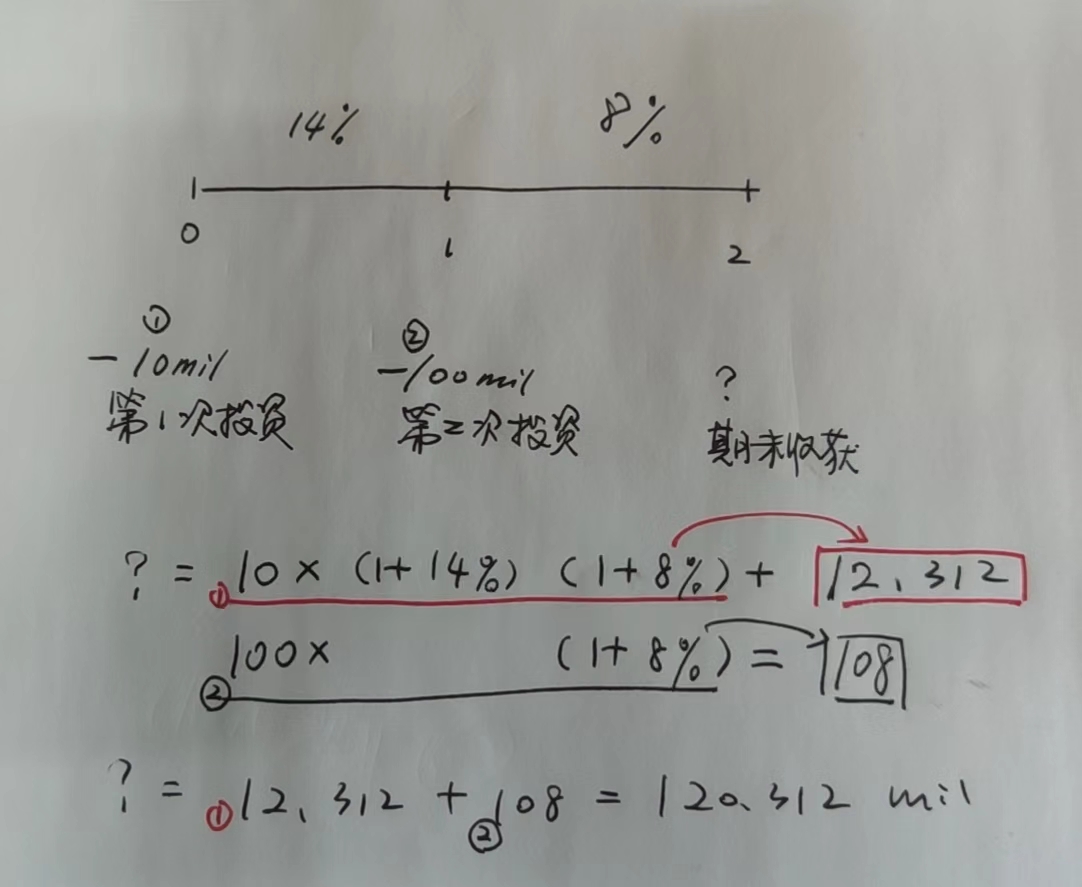 14% 8%
0 1 2
① ②
-10mil -100mil ?
第1次投资 第2次投资 期末收获
? = ①10 × (1+14%) (1+8%) + 12.312
②100× (1+8%) = 108
? = ①12.312 + ②108 = 120.312 mil